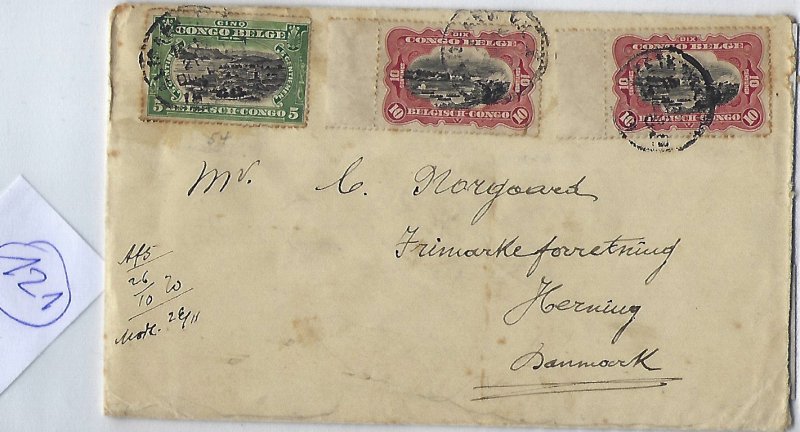 CINQ
CONGO BELGE
CENTIEMES
5 5
BELGISCH-CONGO
DIX
CONGO BELGE
10 10
10 10
BELGISCH-CONGO
DIX
CONGO BELGE
10
10 10
BELGISCH-CONGO
54
Mr. C. Norgaard
Frimarkeforretning
Herning
Danmark
Afs
26
10 20
Modt. 28/11
121